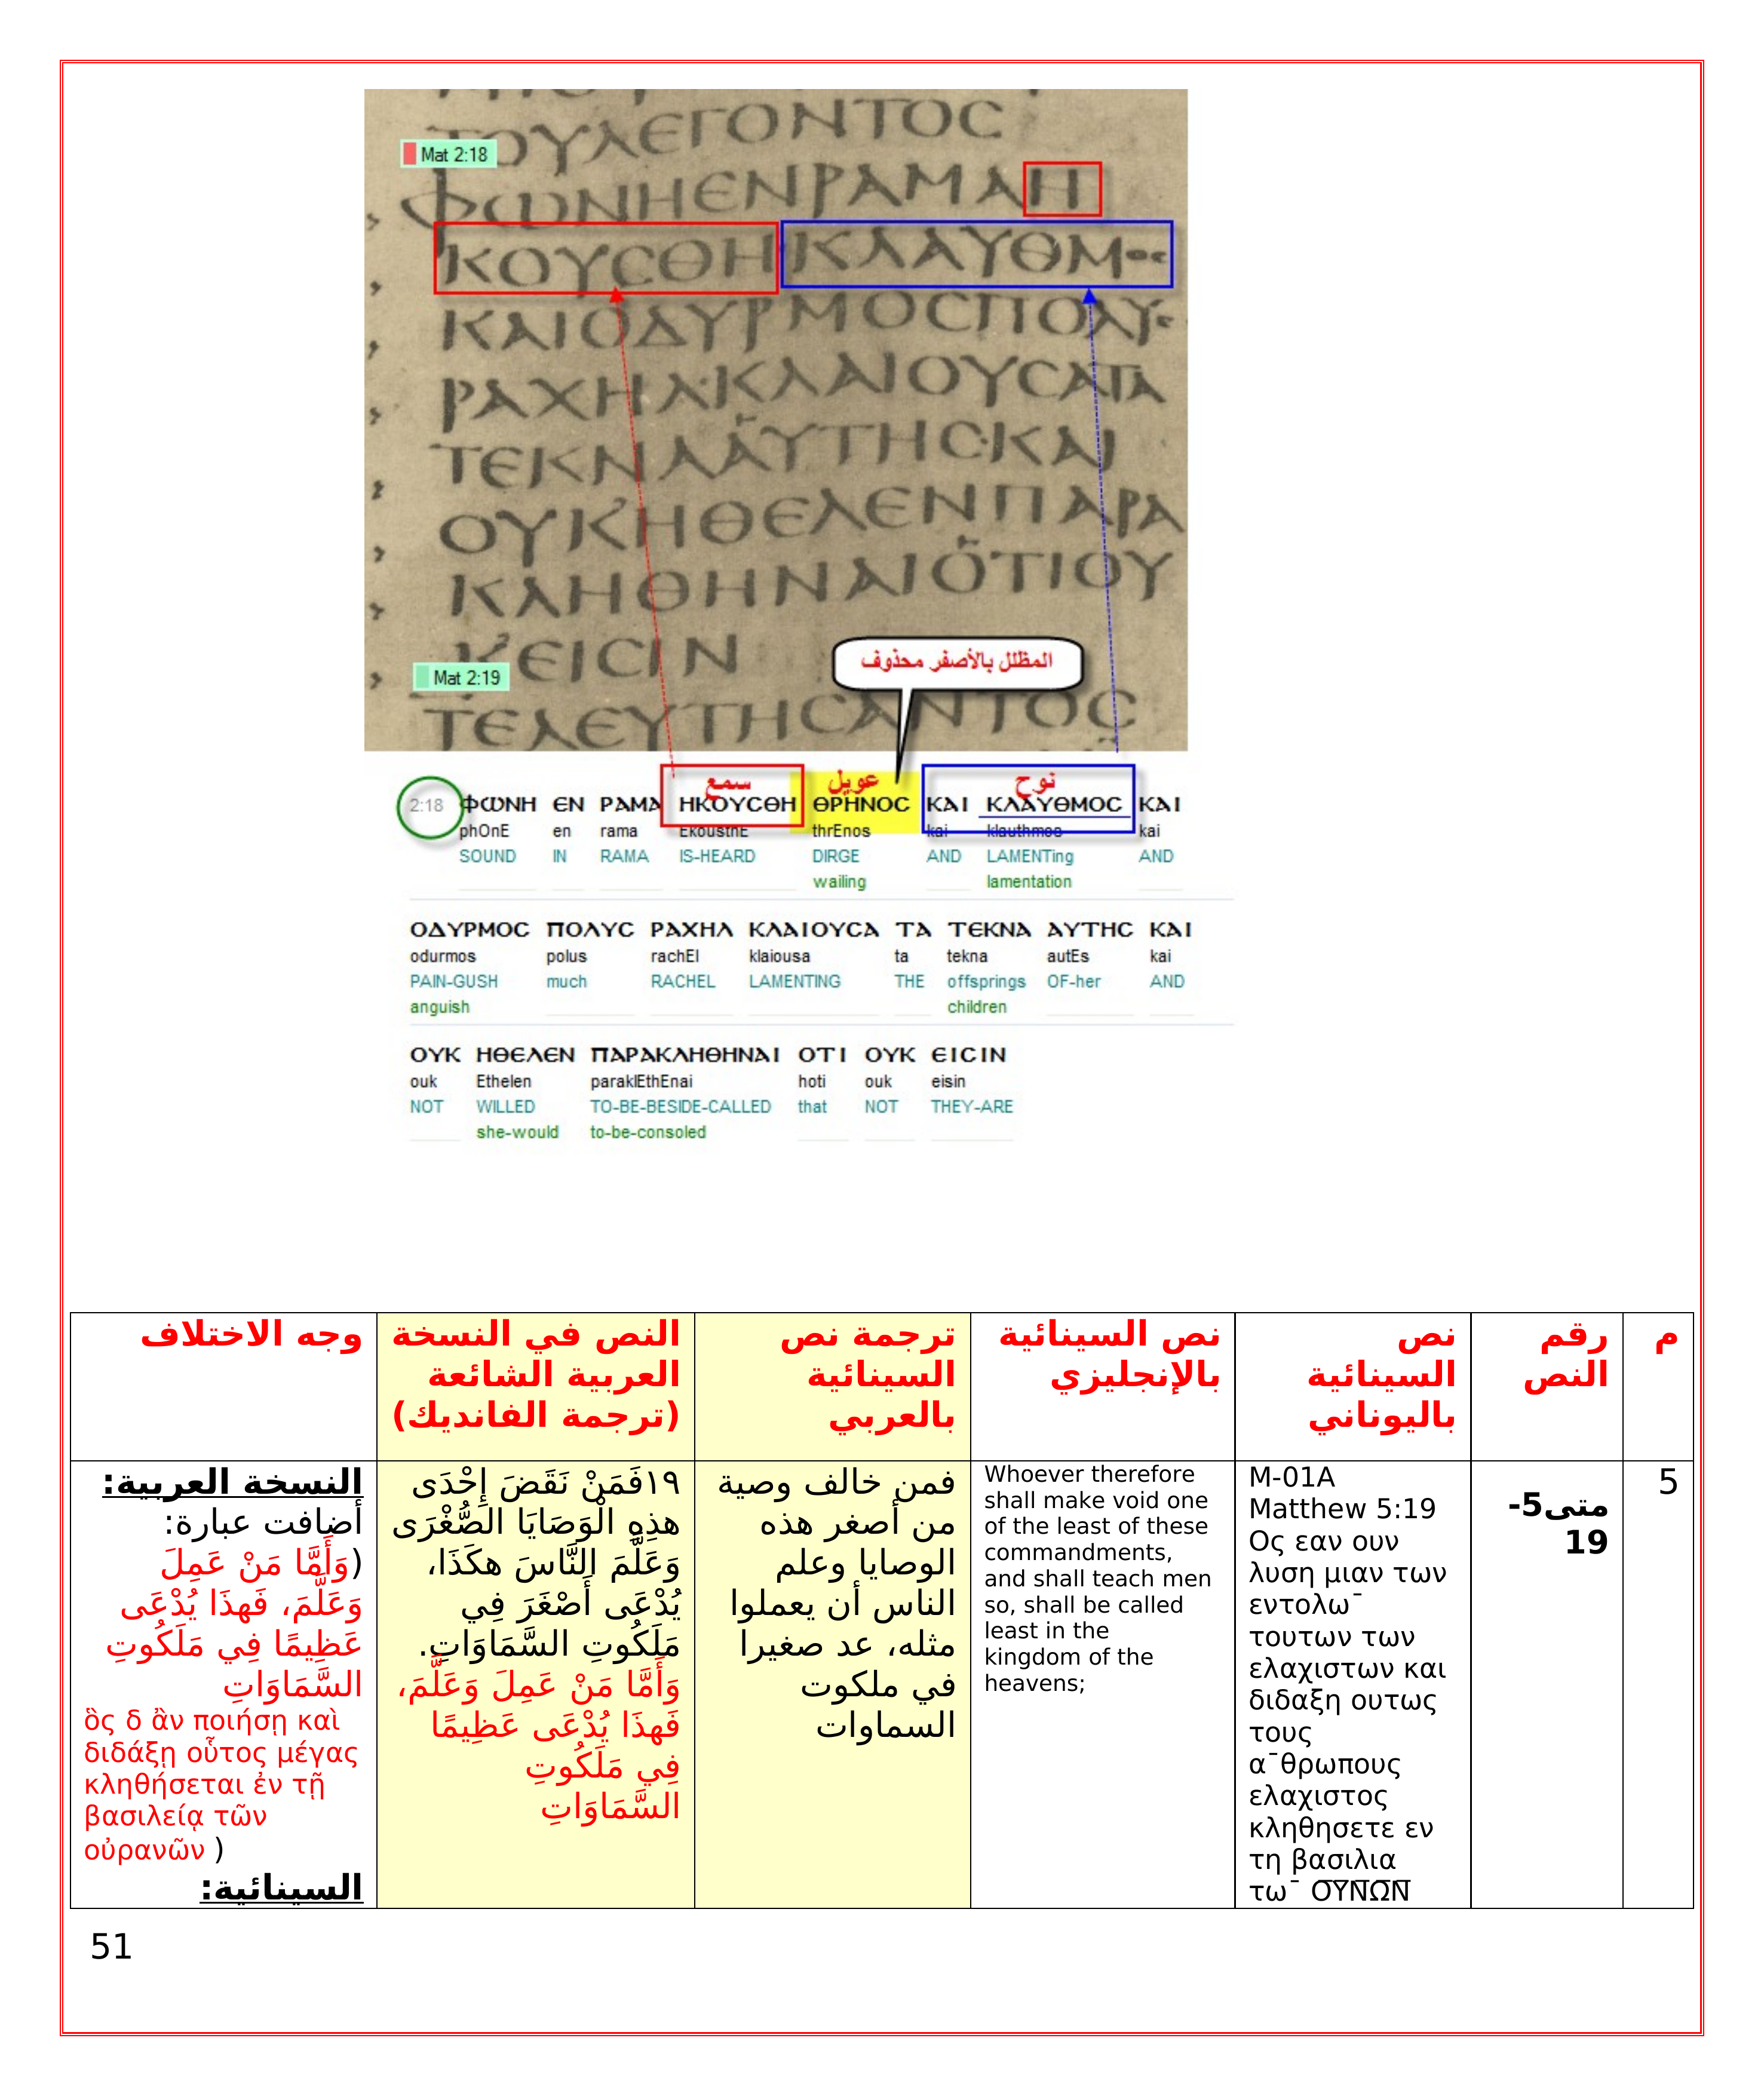 ΤΟΥΛΕΓΟΝΤΟϹ
Mat 2:18
ΦΩΝΗΕΝΡΑΜΑΗ
ΚΟΥϹΘΗΚΛΑΥΘΜΟϹ
ΚΑΙΟΔΥΡΜΟϹΠΟΛΥϹ
ΡΑΧΗΛ·ΚΛΑΙΟΥϹΑΤΑ
ΤΕΚΝΑΑΥΤΗϹ·ΚΑΙ
ΟΥΚΗΘΕΛΕΝΠΑΡΑ
ΚΛΗΘΗΝΑΙΟΤΙΟΥ
ΚΕΙϹΙΝ
المظلل بالأصفر محذوف
Mat 2:19
ΤΕΛΕΥΤΗϹΑΝΤΟϹ
سمع عويل نوح
2:18 ΦΩΝΗ ΕΝ ΡΑΜΑ ΗΚΟΥϹΘΗ ΘΡΗΝΟϹ ΚΑΙ ΚΛΑΥΘΜΟϹ ΚΑΙ
phOnE en rama EkousthE thrEnos kai klauthmos kai
SOUND IN RAMA IS-HEARD DIRGE AND LAMENTing AND
wailing lamentation
ΟΔΥΡΜΟϹ ΠΟΛΥϹ ΡΑΧΗΛ ΚΛΑΙΟΥϹΑ ΤΑ ΤΕΚΝΑ ΑΥΤΗϹ ΚΑΙ
odurmos polus rachEl klaiousa ta tekna autEs kai
PAIN-GUSH much RACHEL LAMENTING THE offsprings OF-her AND
anguish children
ΟΥΚ ΗΘΕΛΕΝ ΠΑΡΑΚΛΗΘΗΝΑΙ ΟΤΙ ΟΥΚ ΕΙϹΙΝ
ouk Ethelen paraklEthEnai hoti ouk eisin
NOT WILLED TO-BE-BESIDE-CALLED that NOT THEY-ARE
she-would to-be-consoled
م
رقم
النص
نص
السينائية
باليوناني
نص السينائية
بالإنجليزي
ترجمة نص
السينائية
بالعربي
النص في النسخة
العربية الشائعة
(ترجمة الفانديك)
وجه الاختلاف
5
متى5-
19
M-01A
Matthew 5:19
Ος εαν ουν
λυση μιαν των
εντολω¯
τουτων των
ελαχιστων και
διδαξη ουτως
τους
α¯θρωπους
ελαχιστος
κληθησετε εν
τη βασιλια
τω¯ Ο̅Υ̅Ν̅Ω̅Ν̅
Whoever therefore
shall make void one
of the least of these
commandments,
and shall teach men
so, shall be called
least in the
kingdom of the
heavens;
فمن خالف وصية
من أصغر هذه
الوصايا وعلم
الناس أن يعملوا
مثله، عد صغيرا
في ملكوت
السماوات
١٩فَمَنْ نَقَضَ إِحْدَى
هذِهِ الْوَصَايَا الصُّغْرَى
وَعَلَّمَ النَّاسَ هكَذَا،
يُدْعَى أَصْغَرَ فِي
مَلَكُوتِ السَّمَاوَاتِ.
وَأَمَّا مَنْ عَمِلَ وَعَلَّمَ،
فَهذَا يُدْعَى عَظِيمًا
فِي مَلَكُوتِ
السَّمَاوَاتِ
النسخة العربية:
أضافت عبارة:
(وَأَمَّا مَنْ عَمِلَ
وَعَلَّمَ، فَهذَا يُدْعَى
عَظِيمًا فِي مَلَكُوتِ
السَّمَاوَاتِ
ὃς δ ἂν ποιήσῃ καὶ
διδάξῃ οὗτος μέγας
κληθήσεται ἐν τῇ
βασιλείᾳ τῶν
οὐρανῶν )
السينائية:
51